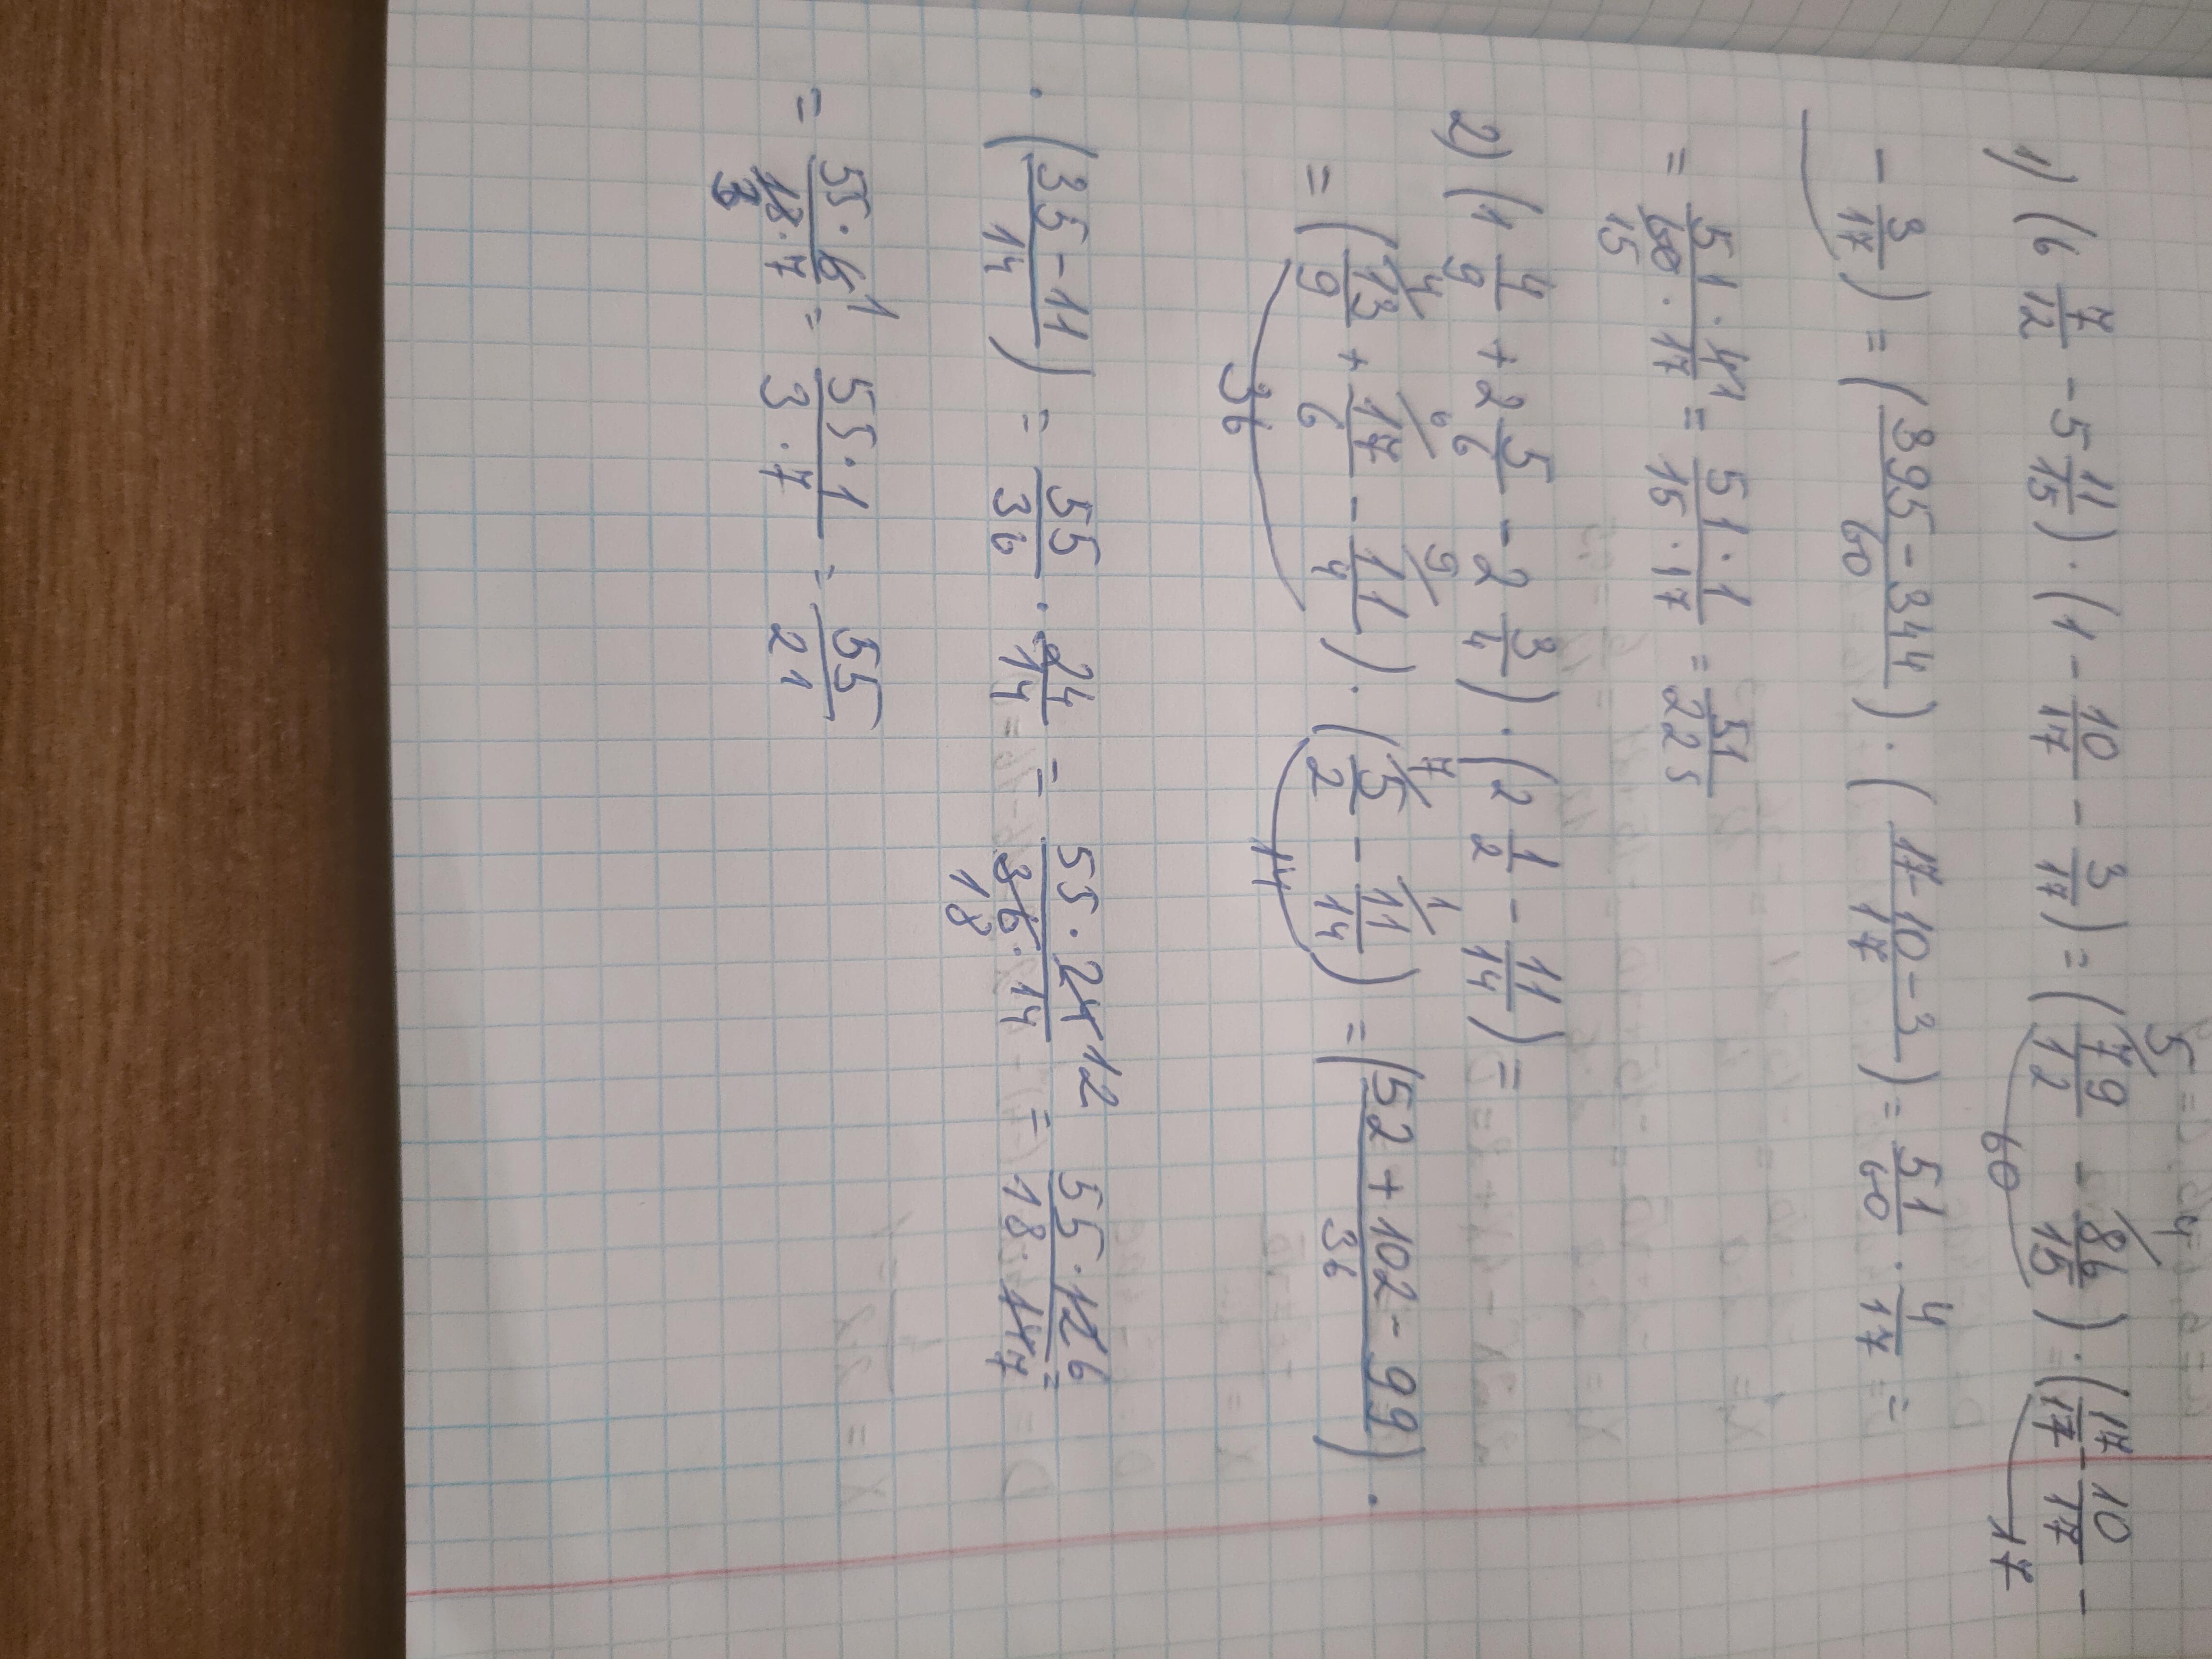 1) (6 7/12 - 5 11/15) · (1 - 10/17 - 3/17) = (79/12 - 86/15) · (17/17 - 10/17 -
5 60 17
- 3/17) = (395-344/60) · (17-10-3/17) = 51/60 · 4/17 =
= 51·4 1/60·17 = 51·1/15·17 = 51/225
15
2) (1 4/9 + 2 5/6 - 2 3/4) · (2 1/2 - 11/14) =
4 6 9 7 1
= (13/9 + 17/6 - 11/4) · (5/2 - 11/14) = (52+102-99/36) ·
36 14
· (35-11/14) = 55/36 · 24/14 = 55·24 12/36·14 = 55·12 6/18·14 7 =
18
= 55·6 1/18·7 = 55·1/3·7 = 55/21
3